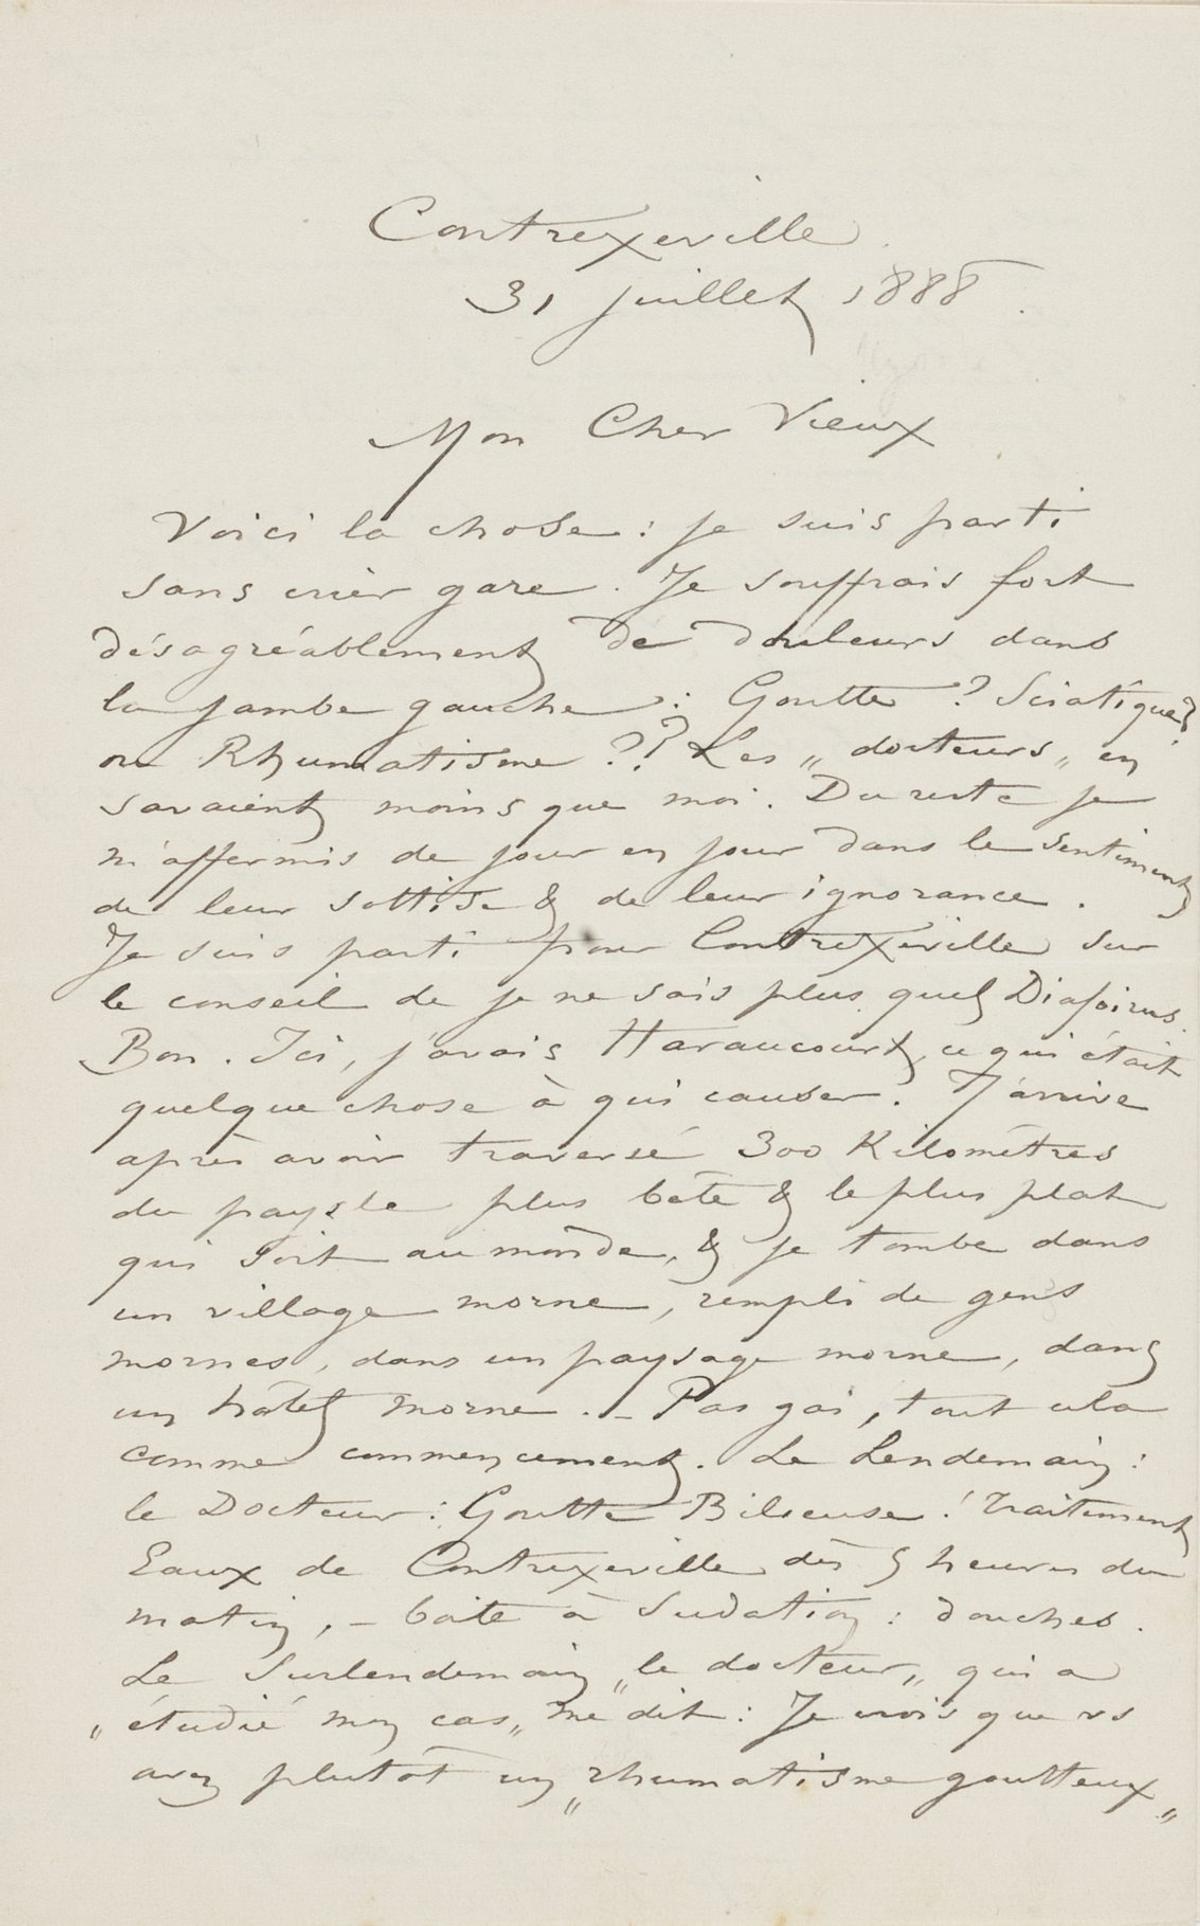 Contrexeville
31 juillet 1888.
Mon Cher Vieux
Voici la chose : je suis parti
sans crier gare. Je souffrais fort
désagréablement de douleurs dans
la jambe gauche : Goutte ? Sciatique ?
ou Rhumatisme ?? Les „ docteurs „ en
savaient moins que moi. Du reste je
m'affermis de jour en jour dans le sentiment
de leur sottise & de leur ignorance.
Je suis parti pour Contrexeville sur
le conseil de je ne sais plus quel Diafoirus.
Bon. Ici, j'avais Haraucourt, ce qui était
quelque chose à qui causer. J'arrive
après avoir traversé 300 Kilomètres
du pays le plus bête & le plus plat
qui soit au monde, & je tombe dans
un village morne, rempli de gens
mornes, dans un paysage morne, dans
un hôtel morne. _ Pas gai, tout cela
comme commencement. Le Lendemain :
le Docteur : Goutte Bilieuse ! Traitement
Eaux de Contrexeville dès 5 heures du
matin, _ boite à Sudation : douches.
Le Surlendemain „ le docteur „ qui a
„ étudié mon cas „ me dit : Je crois que vs
avez plutôt un „ rhumatisme goutteux „